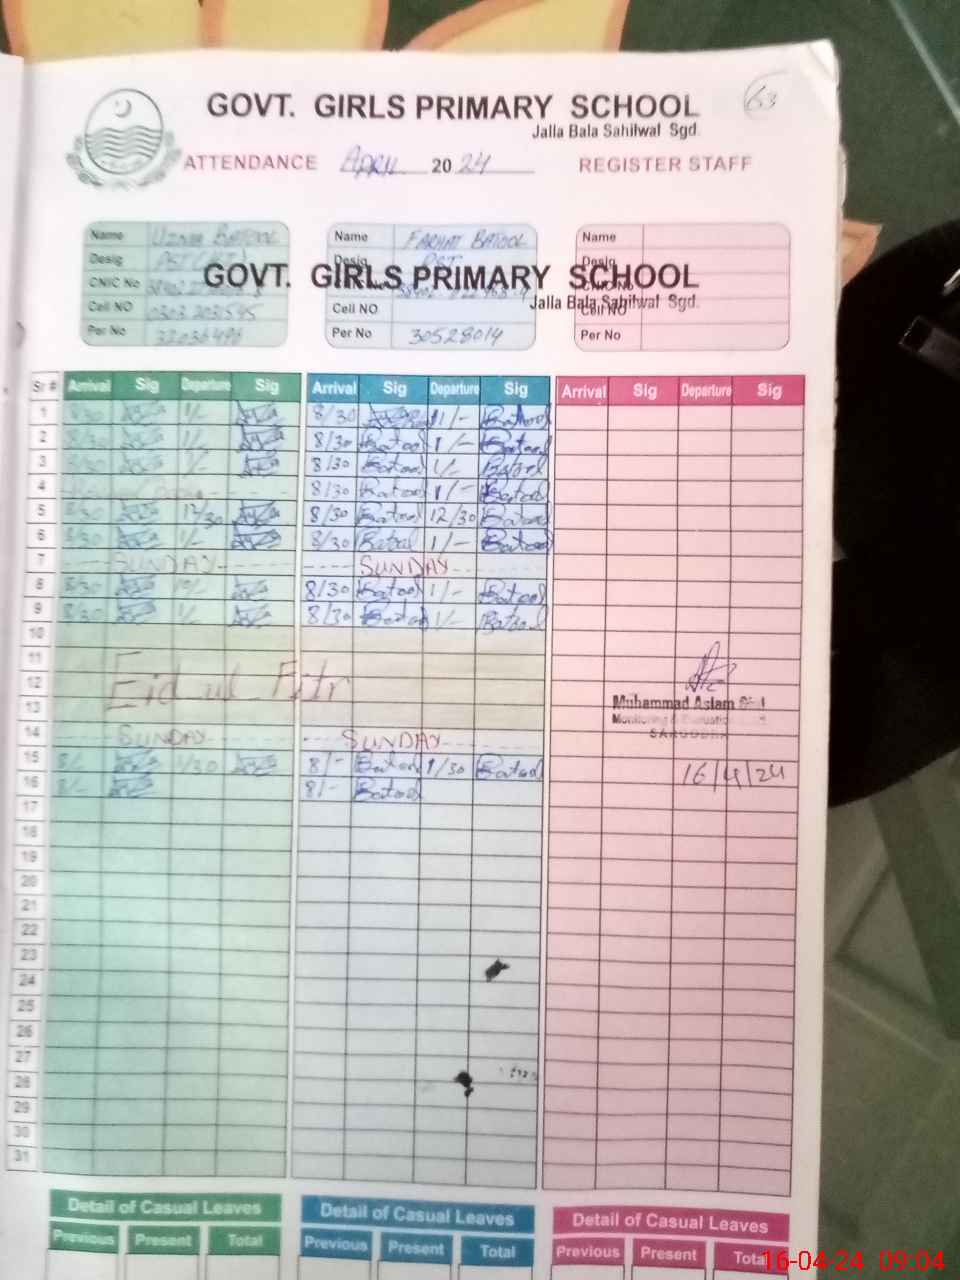 63
GOVT. GIRLS PRIMARY SCHOOL
Jalla Bala Sahilwal Sgd.
ATTENDANCE APRIL 2024 REGISTER STAFF
Name Uzma Batool Name FARHAT BATOOL Name
Desig Desig PST Desig
GOVT. GIRLS PRIMARY SCHOOL
CNIC No CNIC No
Jalla Bala Sahilwal Sgd.
Cell NO Cell NO Cell NO
Per No Per No 30528014 Per No
Sr # Arrival Sig Departure Sig Arrival Sig Departure Sig Arrival Sig Departure Sig
1 8/30 1/- 8/30 1/- Batool
2 8/30 1/- 8/30 Batool 1/- Batool
3 8/30 1/- 8/30 Batool 1/- Batool
4 8/30 Batool 1/- Batool
5 8/30 12/30 8/30 Batool 12/30 Batool
6 8/30 1/- 8/30 Batool 1/- Batool
7 SUNDAY SUNDAY
8 8/30 8/30 Batool 1/- Batool
9 8/30 1/- 8/30 Batool 1/- Batool
10
11
12 Eid ul Fitr
13 Muhammad Aslam
14 SUNDAY SUNDAY SARGODHA
15 8/- 1/30 8/- Batool 1/30 Batool 16/4/24
16 8/- 8/- Batool
17
18
19
20
21
22
23
24
25
26
27
28
29
30
31
Detail of Casual Leaves Detail of Casual Leaves Detail of Casual Leaves
Previous Present Total Previous Present Total Previous Present Total
16-04-24 09:04